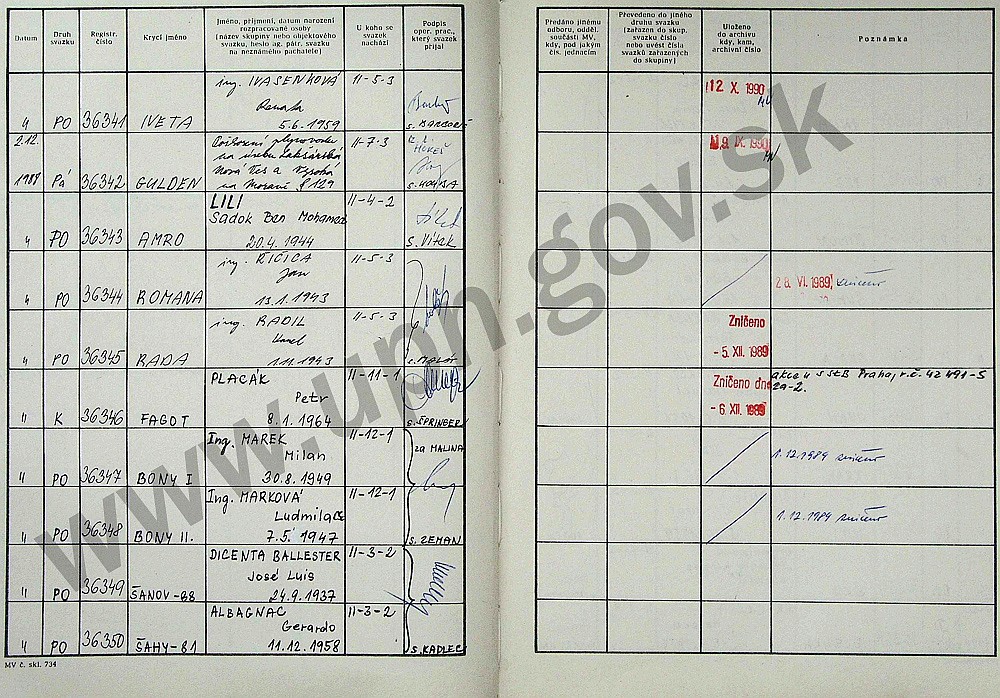 Datum
Druh
svazku
Registr.
číslo
Krycí jméno
Jméno, příjmení, datum narození
rozpracované osoby
(název skupiny nebo objektového
svazku, heslo ag. pátr. svazku
na neznámého pachatele)
U koho se
svazek
nachází
Podpis
oper. prac.,
který svazek
přijal
Předáno jinému
odboru, odděl.
součásti MV,
kdy, pod jakým
čís. jednacím
Převedeno do jiného
druhu svazku
(zařazen do skup.
svazku číslo
nebo uvést čísla
svazků zařazených
do skupiny)
Uloženo
do archívu
kdy, kam,
archivní číslo
Poznámka
ing. IVASENKOVÁ II-5-3
Renata
" PO 36341 IVETA 5.6.1959 s. BARBORIČ
12 X. 1990
2.12.
1988 Pá 36342 GULDEN
na úseku Lakšárská
Nová Ves a Vysoká
na Moravě § 129
II-7-3
9. IX. 1990
LILI II-4-2
Sadok Ben Mohamed
" PO 36343 AMRO 20.4.1944 s. Vítek
ing. RICICA II-5-3
Jan
" PO 36344 ROMANA 13.1.1943
28. VI. 1989 zničeno
ing. RADIL II-5-3
Karel
" PO 36345 RADA 1.11.1943
Zničeno
- 5. XII. 1989
PLACÁK II-11-1
Petr
" K 36346 FAGOT 8.1.1964 s. ŠPRINGER
Zničeno dne
- 6. XII. 1989
akce u s StB Praha, r.č. 42491-S
29-2.
Ing. MAREK II-12-1
Milan
" PO 36347 BONY I 30.8.1949
za MALINA
1.12.1989 zničeno
Ing. MARKOVÁ II-12-1
Ludmila
" PO 36348 BONY II. 7.5.1947 s. ZEMAN
1.12.1989 zničeno
DICENTA BALLESTER II-3-2
José Luis
" PO 36349 ŠANOV-88 24.9.1937
ALBAGNAC II-3-2
Gerardo
" PO 36350 ŠAHY-81 11.12.1958 s. KADLEC
MV č. skl. 734
www.upn.gov.sk